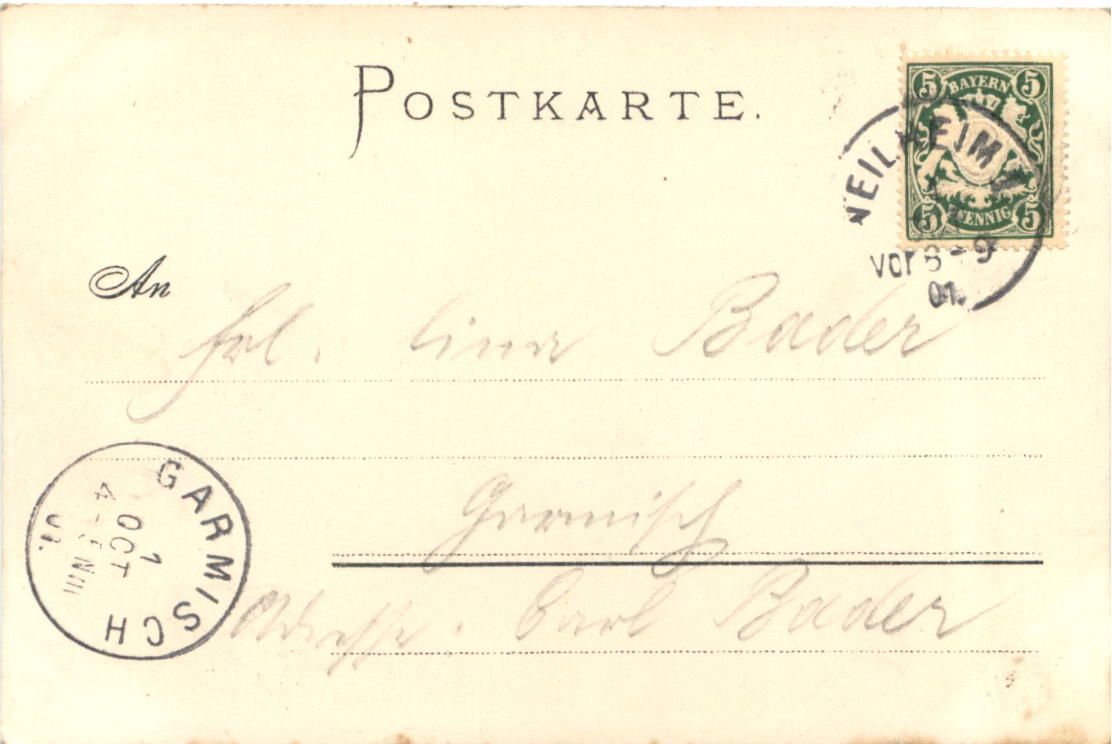 POSTKARTE.
5 BAYERN 5
5 PFENNIG 5
WEILHEIM
vor 8-9
01.
An
Frl. Lina Bader
Garmisch
Adresse. Carl Bader
GARMISCH
1
OCT
4-5 NM
01.